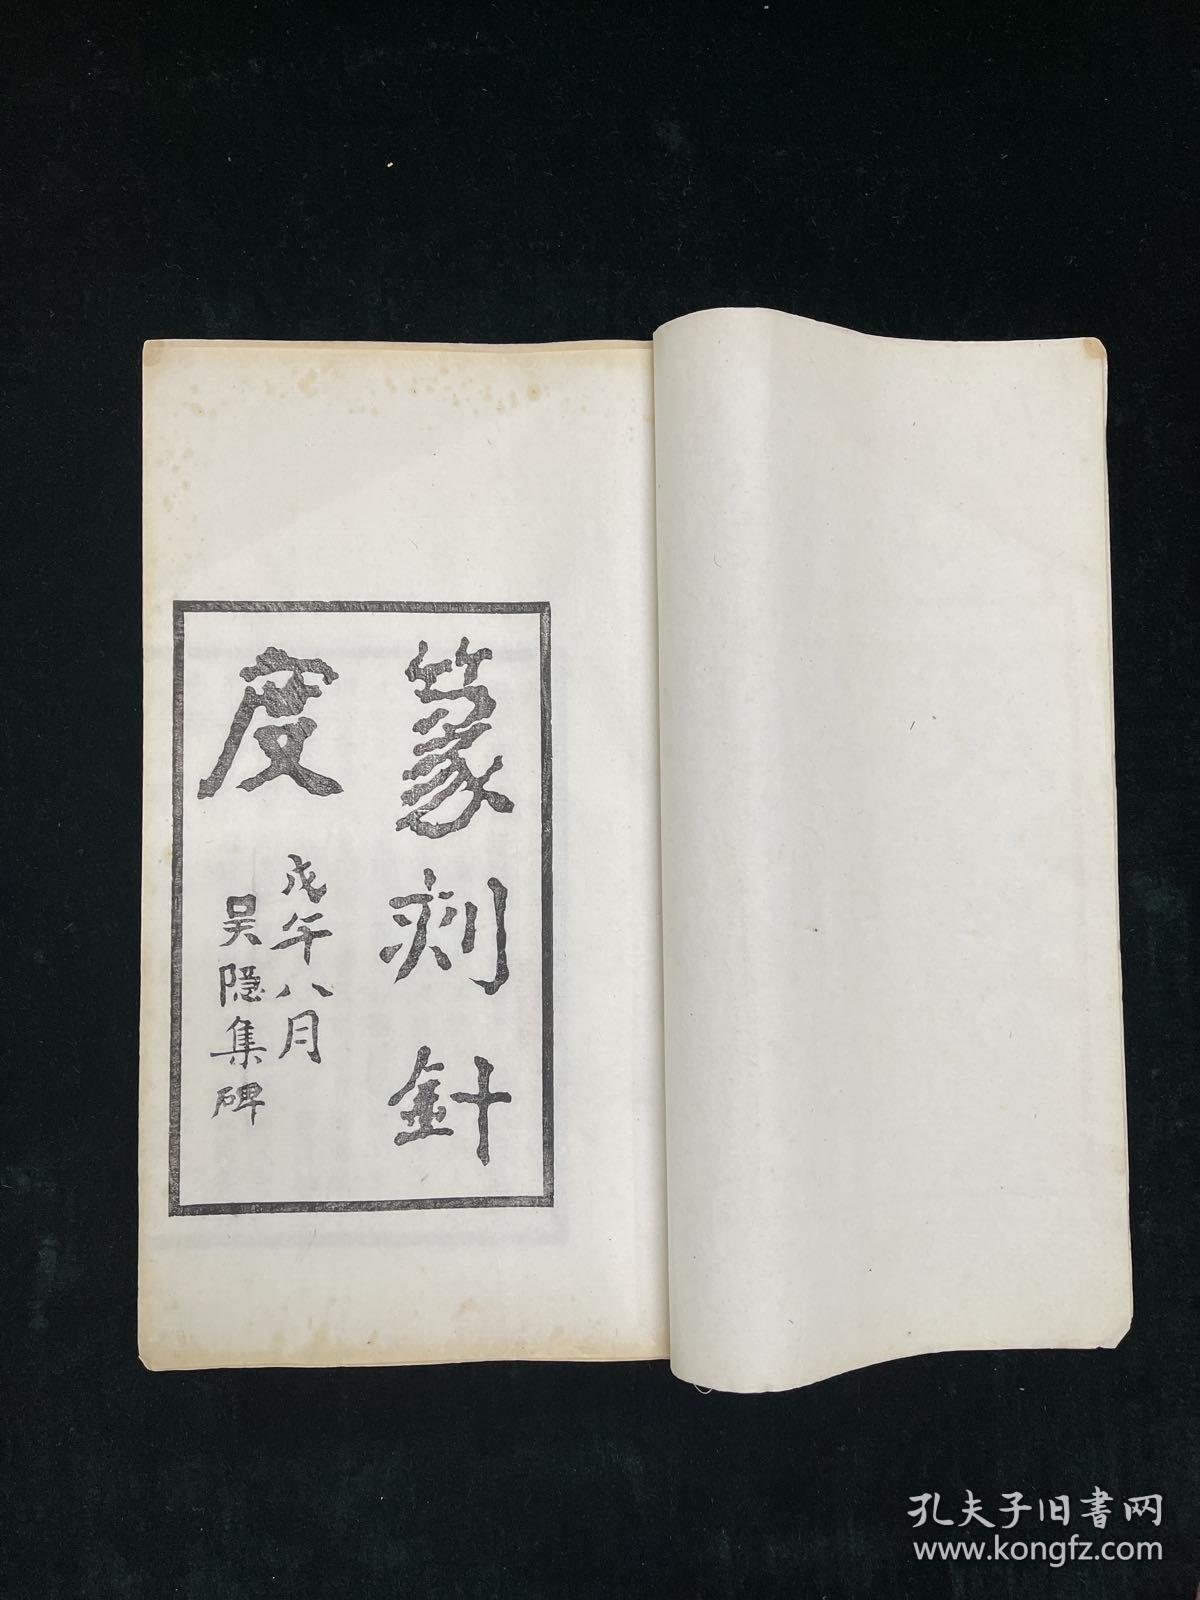 篆刻針
度
戊午八月
吴隐集碑
孔夫子旧書网
www.kongfz.com